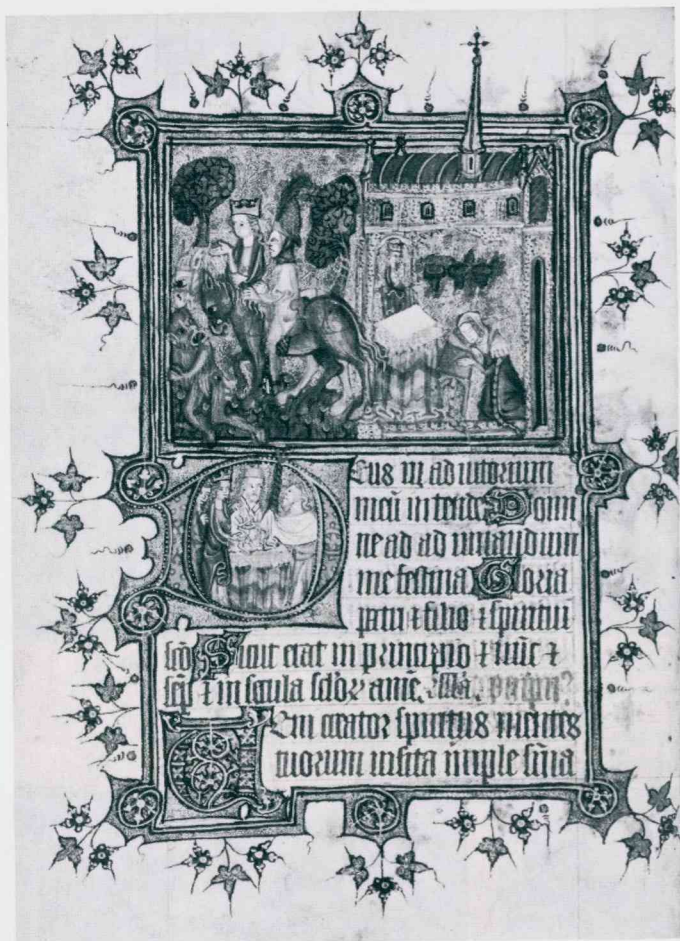 eus in ad iutorium
meū intende Domi
ne ad ad iuuandum
me festina Gloria
patri ⁊ filio ⁊ spiritui
sc̄o Sicut erat in principio ⁊ nūc ⁊
sēp ⁊ in secula sc̄lor amē.
Eni creator spiritus mentes
tuorum uisita imple sūma